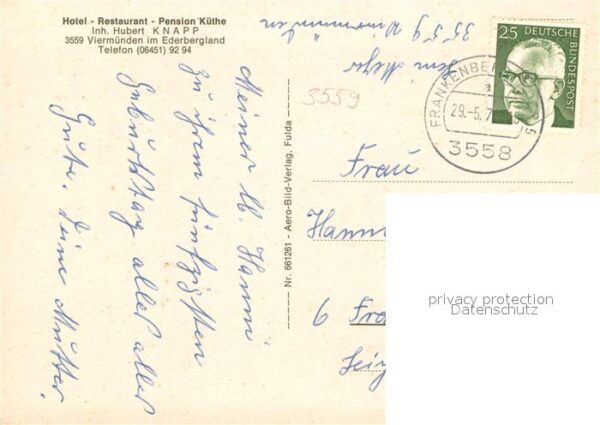 Hotel - Restaurant - Pension Küthe
Inh. Hubert KNAPP
3559 Viermünden im Ederbergland
Telefon (06451) 92 94
Meiner lb. Hanni
zu ihrem fünfzigsten
Geburtstag alles alles
Gute. Deine Mutter.
Nr. 661261 - Aero-Bild-Verlag, Fulda
Meyer
3559 Viermünden
3559
25 DEUTSCHE BUNDESPOST
FRANKENBERG
a
29.-5.7
3558
Frau
Hann
6 Fra
Leipz
privacy protection
Datenschutz